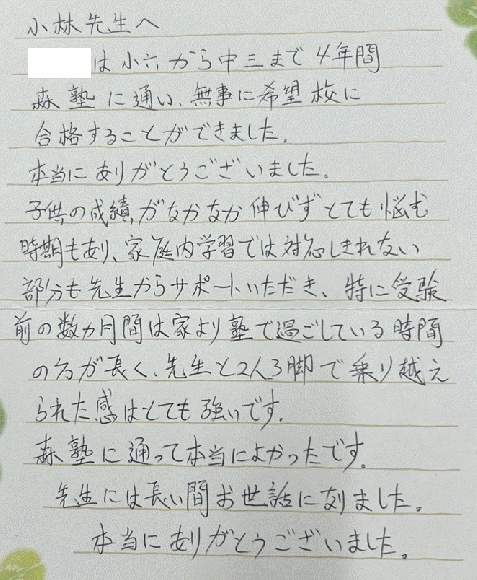 小林先生へ
は小六から中三まで4年間
森塾に通い、無事に希望校に
合格することができました。
本当にありがとうございました。
子供の成績がなかなか伸びずとても悩む
時期もあり、家庭内学習では対応しきれない
部分も先生からサポートいただき、特に受験
前の数カ月間は家より塾で過ごしている時間
の方が長く、先生と2人3脚で乗り越え
られた感はとても強いです。
森塾に通って本当によかったです。
先生には長い間お世話になりました。
本当にありがとうございました。